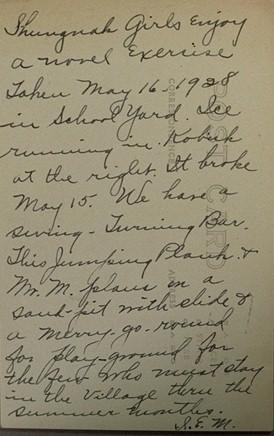 Shungnak Girls Enjoy
a novel Exercise
Taken May 16-1928
in School Yard. Ice
running in Kobuk
at the right. It broke
May 15. We have a
swing - Turning Bar.
This Jumping Plank. &
Mr. M. plans on a
sand-pit with slide &
a merry-go-round
for play-ground for
the few who must stay
in the Village thru the
summer months.
S. E. M.
POST CARD
CORRESPONDENCE